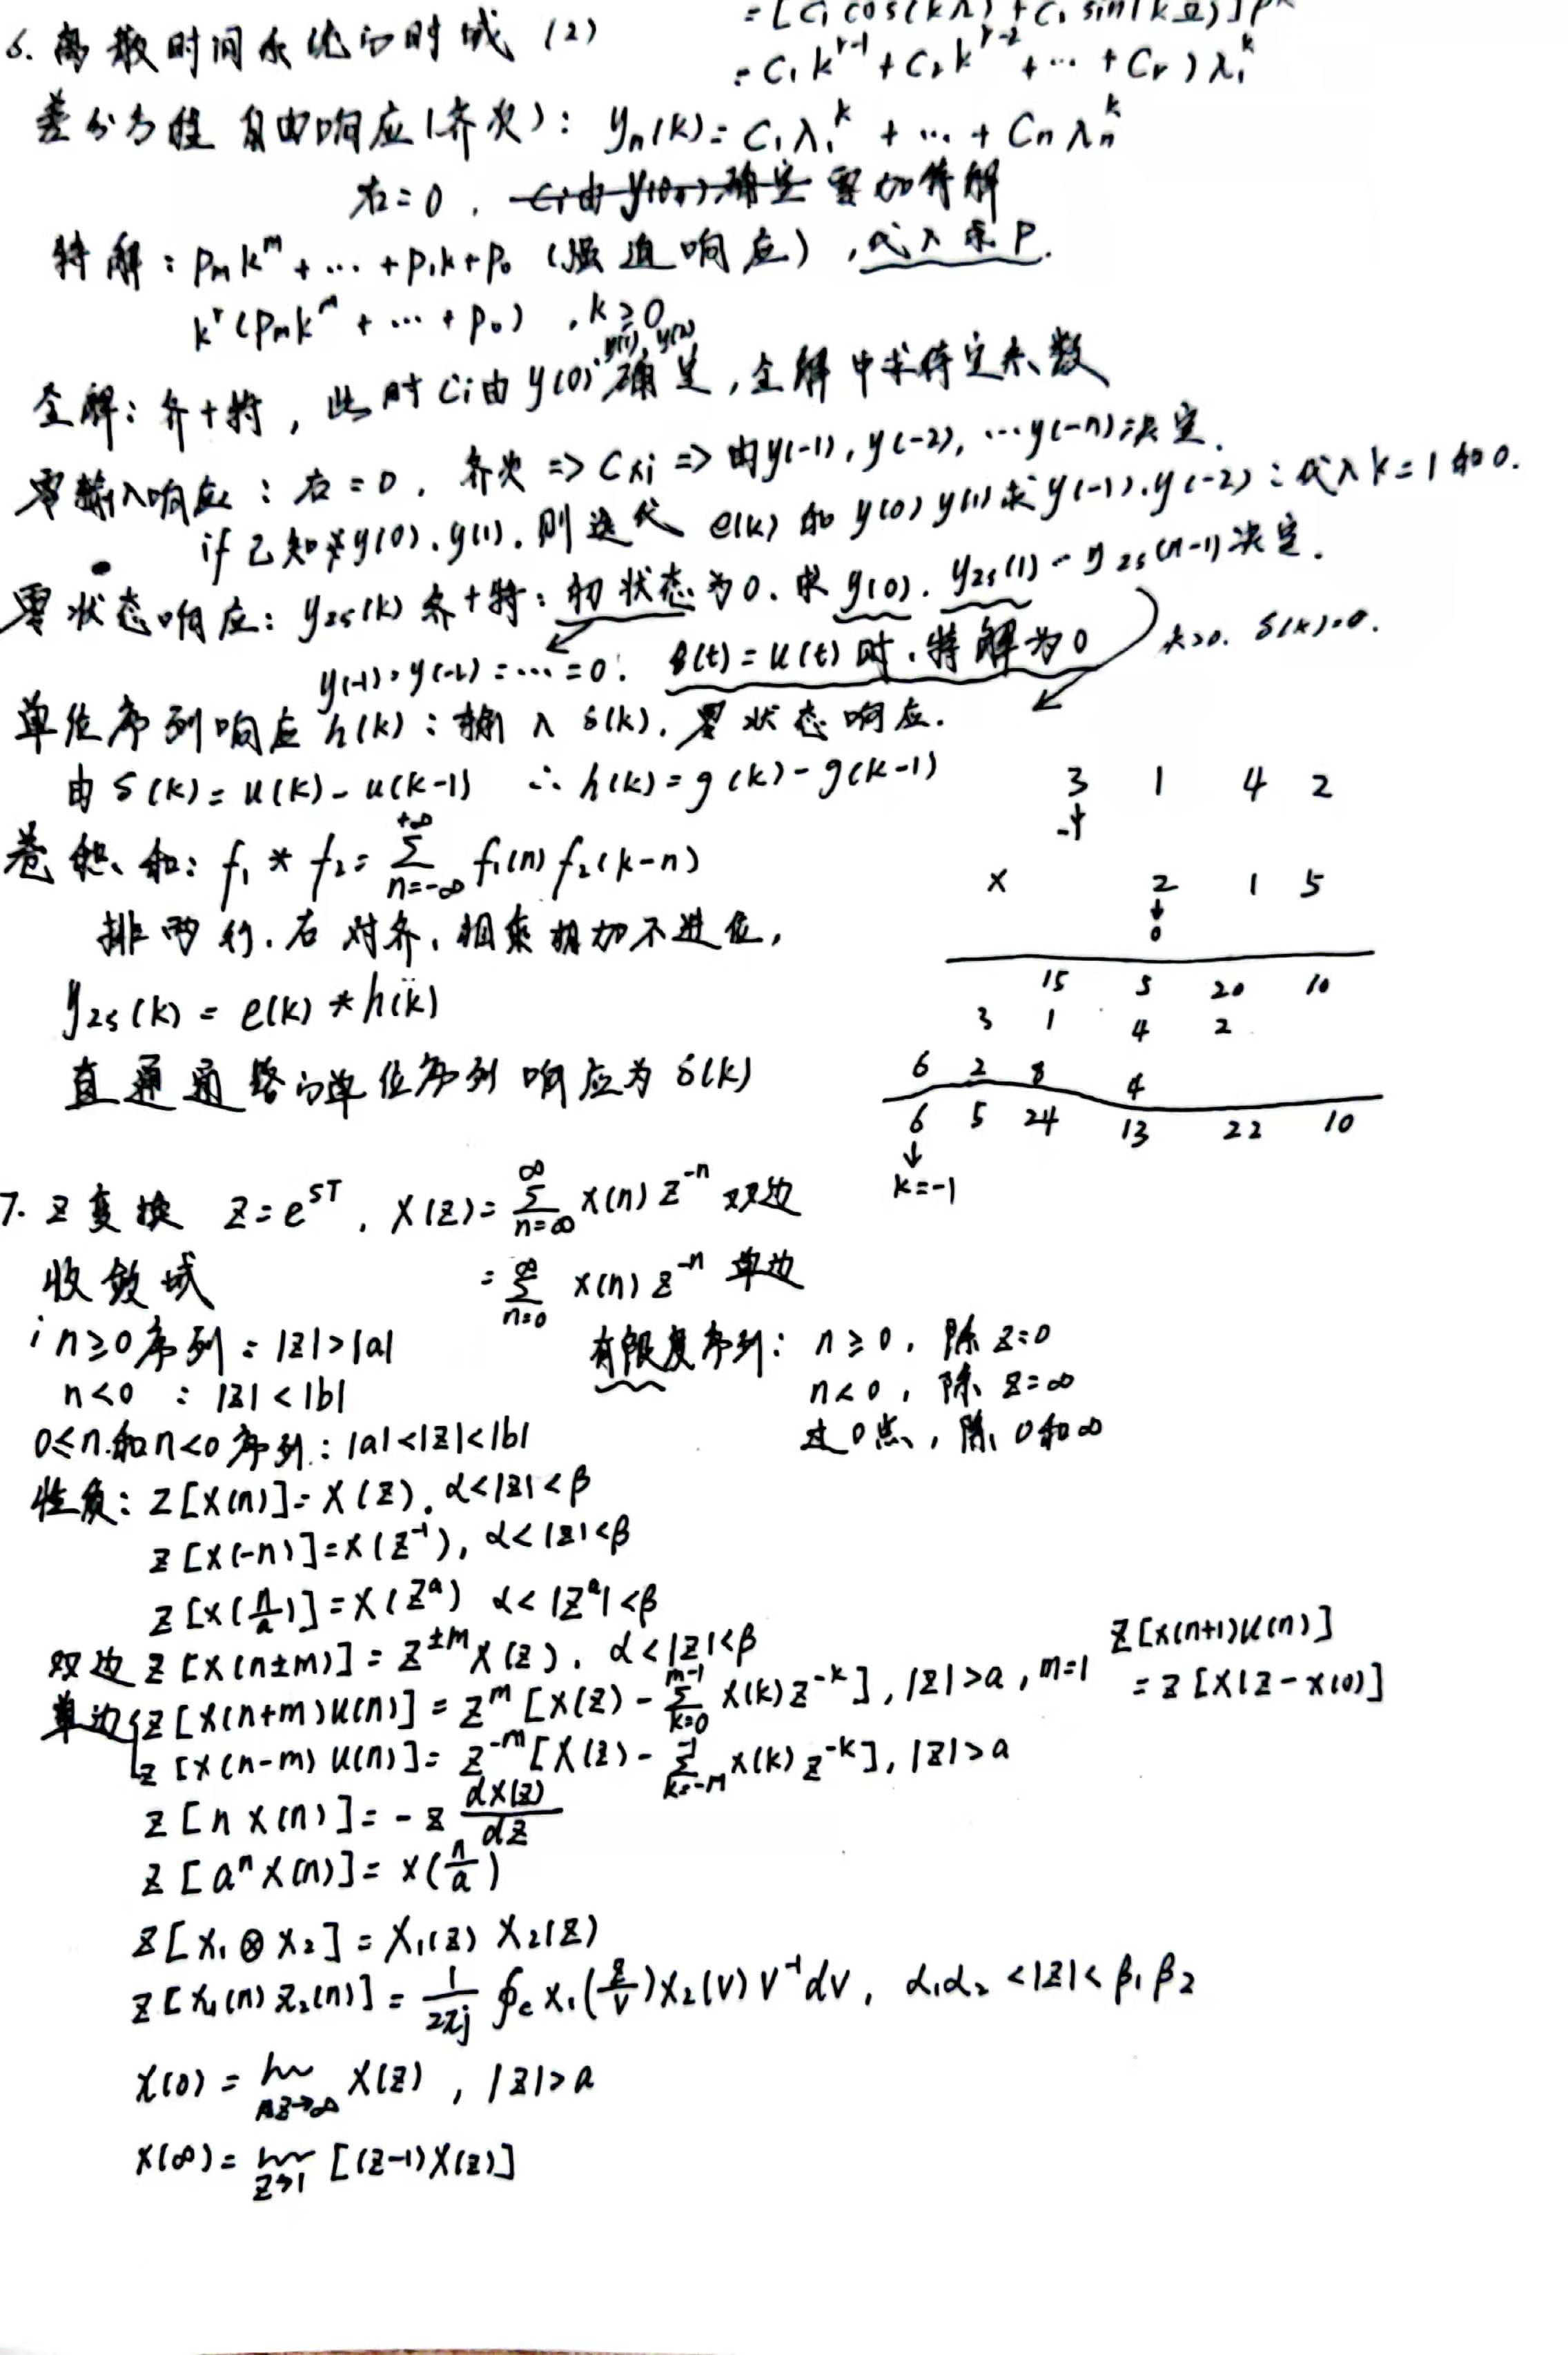 6. 离散时间系统的时域 (2)
= [C₁ cos(kΩ) + C₂ sin(kΩ)] ρᵏ
= C₁k^{r-1} + C₂k^{r-2} + … + Cr) λ₁ᵏ
差分方程 自由响应(齐次): yn(k) = C₁λ₁ᵏ + … + Cnλnᵏ
右=0, 需加特解
特解: Pm kᵐ + … + P₁k + P₀ (强迫响应), 代入求P.
kʳ(Pm kᵐ + … + P₀), k≥0
y(1), y(2)
全解: 齐+特, 此时Ci由y(0)确定, 全解中求待定系数
零输入响应: 右=0, 齐次 => Cxi => 由y(-1), y(-2), …y(-n)决定.
if 已知y(0), y(1), 则迭代 e(k) 和 y(0) y(1) 求 y(-1), y(-2): 代入k=1和0.
零状态响应: yzs(k) 齐+特: 初状态为0, 求y(0), yzs(1) … yzs(n-1)决定.
y(-1)=y(-2)=…=0. e(t)=u(t)时, 特解为0 k>0, δ(k)=0.
单位序列响应 h(k): 输入 δ(k), 零状态响应.
由 δ(k) = u(k) - u(k-1) ∴ h(k) = g(k) - g(k-1)
卷积和: f₁ * f₂ = Σ_{n=-∞}^{+∞} f₁(n) f₂(k-n)
排两行, 右对齐, 相乘相加不进位,
yzs(k) = e(k) * h(k)
直通通路的单位序列响应为 δ(k)
3 1 4 2
↓
-1
× 2 1 5
↓
0
15 5 20 10
3 1 4 2
6 2 8 4
6 5 24 13 22 10
↓
k=-1
7. Z变换 Z = e^{ST}, X(Z) = Σ_{n=∞}^{∞} x(n) Z^{-n} 双边
收敛域 = Σ_{n=0}^{∞} x(n) z^{-n} 单边
i n≥0序列: |Z|>|a|
n<0 : |Z|<|b|
0≤n和n<0序列: |a|<|Z|<|b|
有限长序列: n≥0, 除z=0
n<0, 除z=∞
过0点, 除0和∞
性质: Z[x(n)] = X(Z), α<|Z|<β
Z[x(-n)] = X(Z⁻¹), α<|Z|<β
Z[x(n/a)] = X(Zᵃ) α<|Zᵃ|<β
双边 Z[x(n±m)] = Z^{±m} X(Z), α<|Z|<β
单边{Z[x(n+m)u(n)] = Z^m [X(Z) - Σ_{k=0}^{m-1} x(k)Z^{-k}], |Z|>a, m=1 Z[x(n+1)u(n)]
= Z[X(Z - x(0)]
Z[x(n-m)u(n)] = Z^{-m} [X(Z) - Σ_{k=-m}^{-1} x(k)Z^{-k}], |Z|>a
Z[n x(n)] = -Z dX(Z)/dZ
Z[aⁿx(n)] = X(n/a)
Z[x₁ ⊗ x₂] = X₁(Z) X₂(Z)
Z[x₁(n) x₂(n)] = 1/2πj ∮c X₁(Z/V) X₂(V) V⁻¹dV, α₁α₂<|Z|<β₁β₂
x(0) = lim_{z→∞} X(Z), |Z|>a
x(∞) = lim_{z→1} [(Z-1)X(Z)]